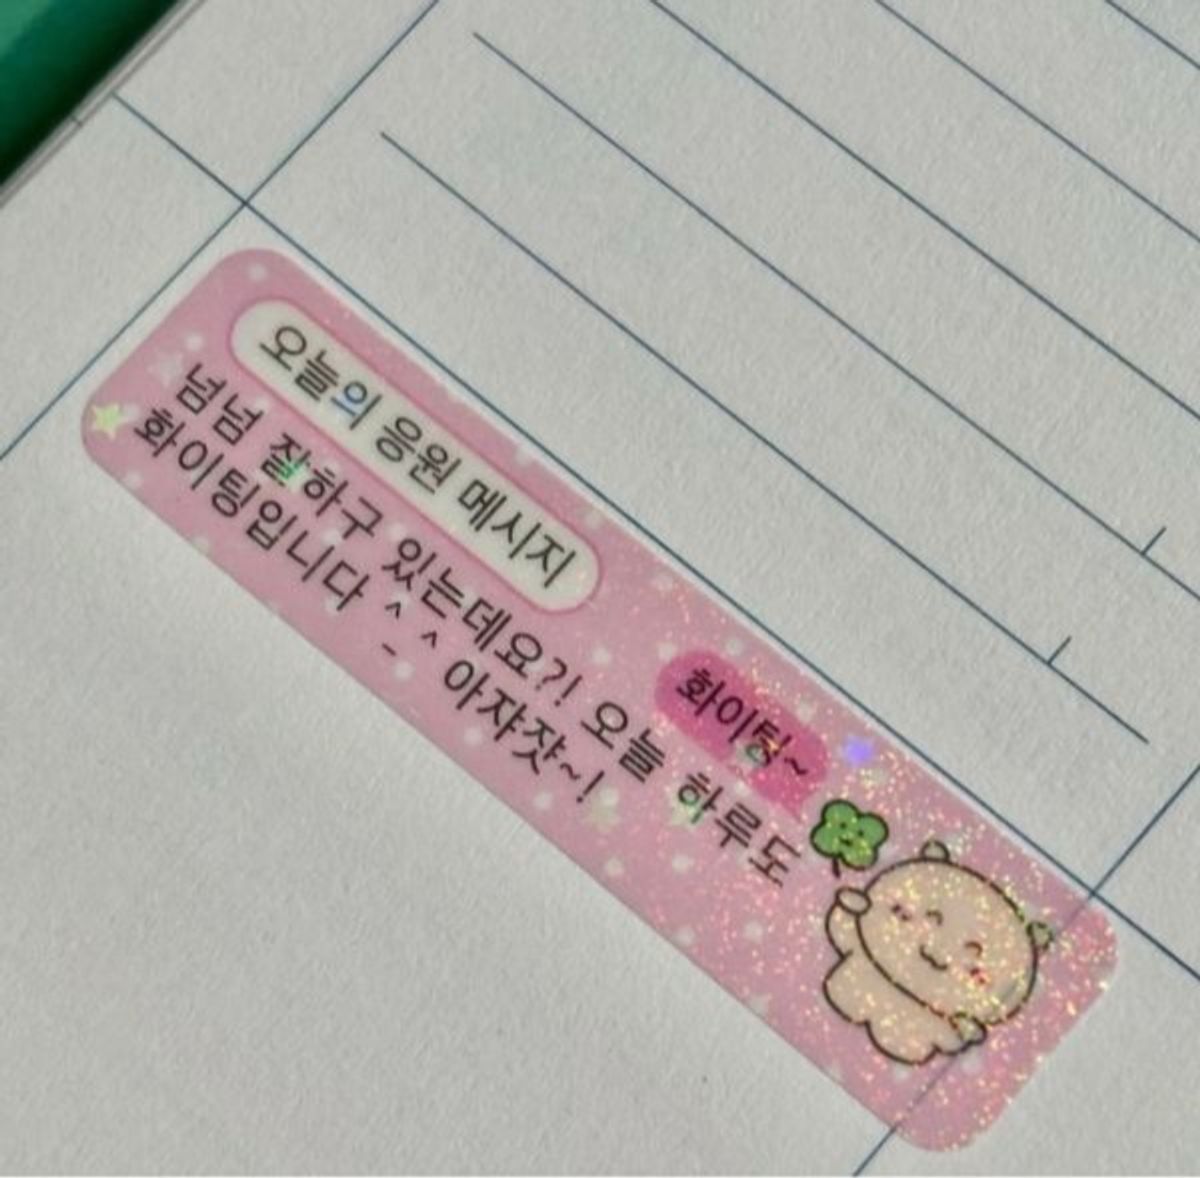 오늘의 응원 메시지
화이팅~
넘넘 잘하구 있는데요?! 오늘 하루도
화이팅입니다 ^_^ 아쟈쟛~!